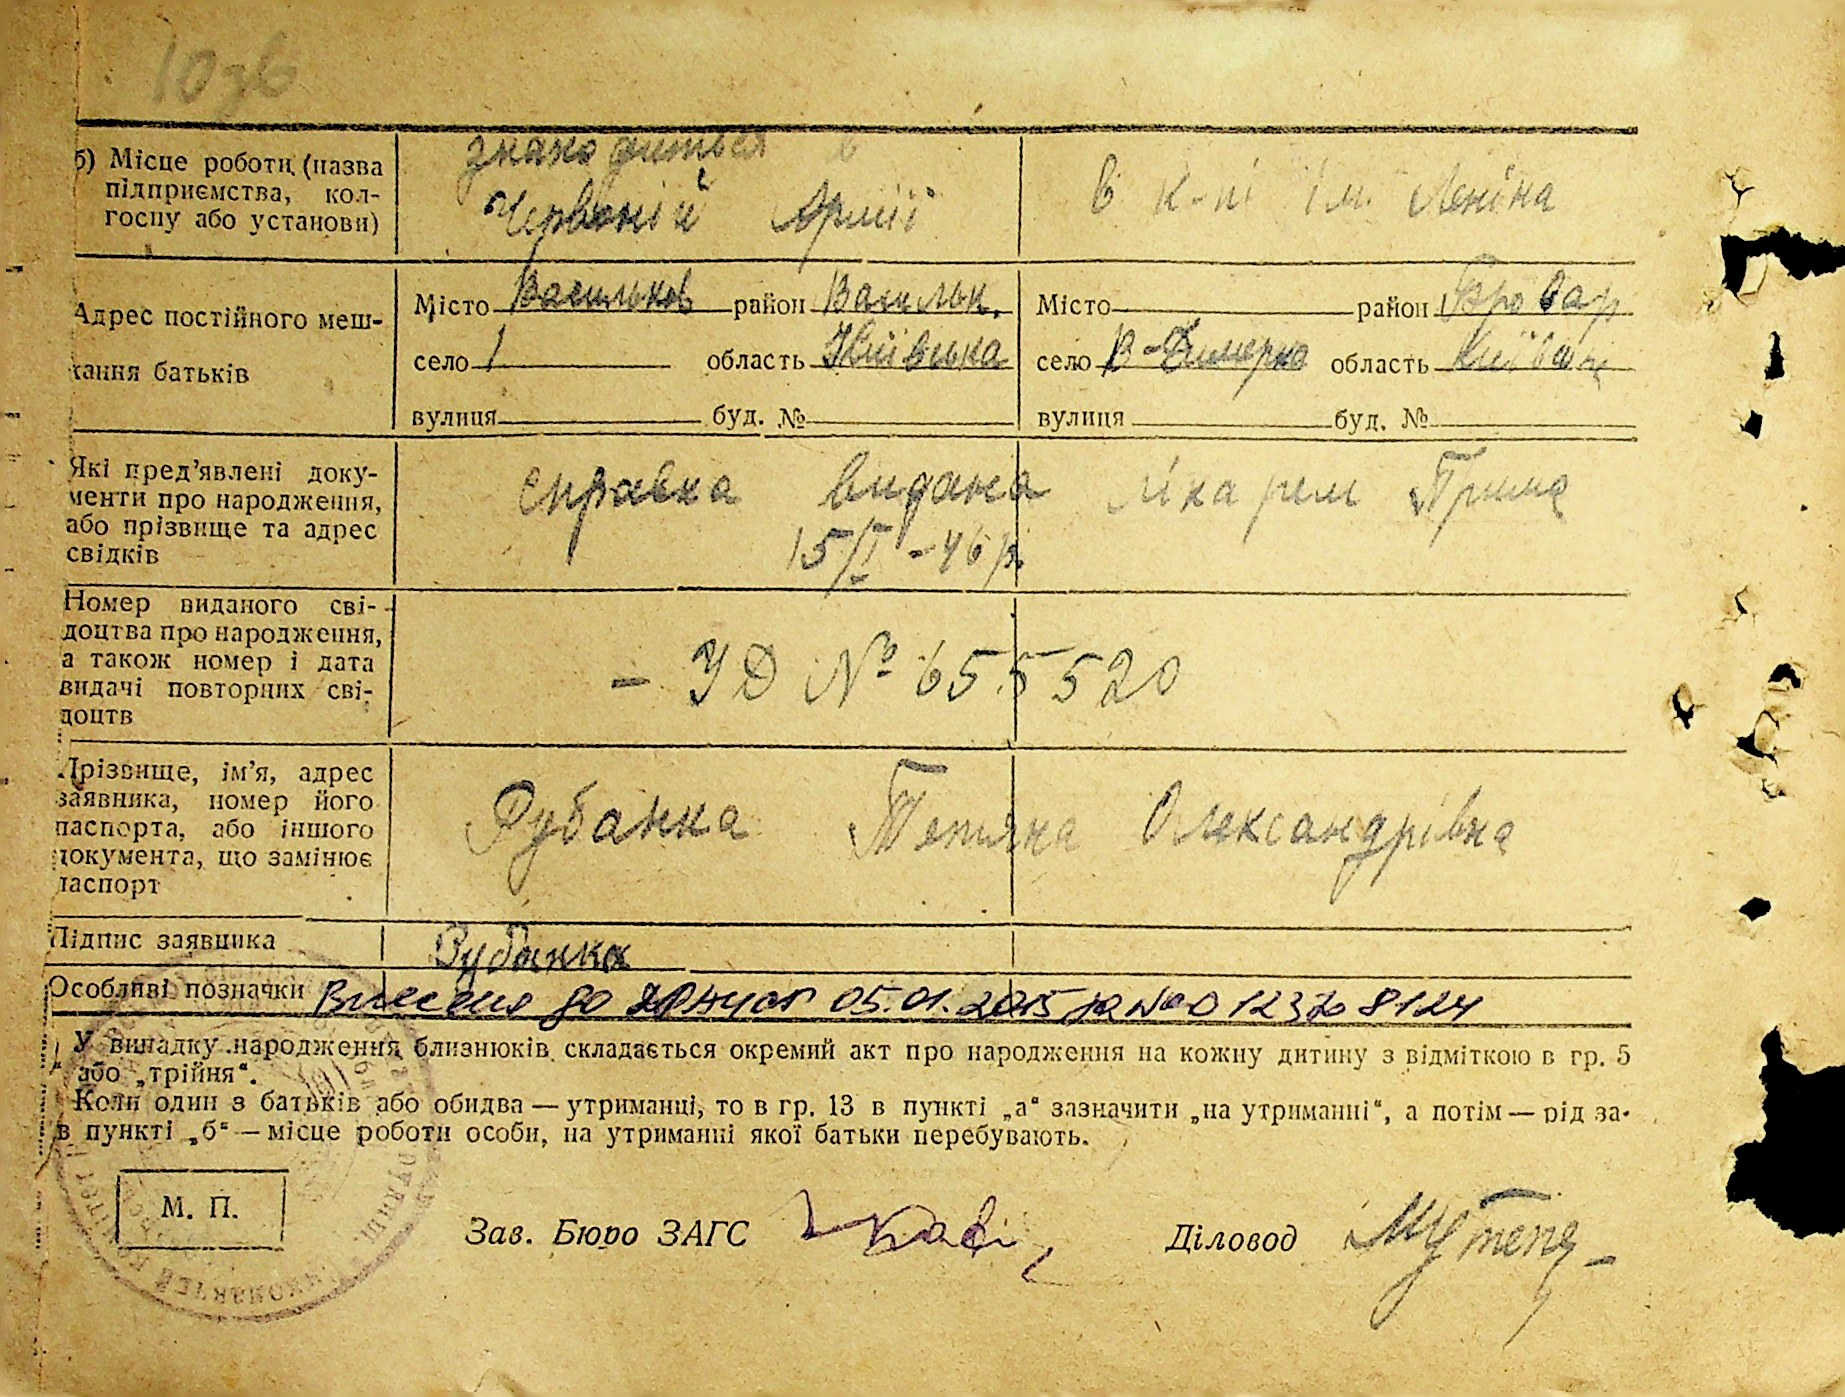 10 зв
б) Місце роботи (назва
підприємства, кол-
госпу або установи)
знаходиться в
Червоній Армії
в к-пі ім. Леніна
Адрес постійного меш-
кання батьків
Місто Васильков район Васильк.
село / область Київська
вулиця буд. №
Місто район Бровар
село В-Димерка область Київськ
вулиця буд. №
Які пред'явлені доку-
менти про народження,
або прізвище та адрес
свідків
справка видана лікарем
15/I - 46 р.
Номер виданого сві-
доцтва про народження,
а також номер і дата
видачі повторних сві-
доцтв
- УД № 655520
Прізвище, ім'я, адрес
заявника, номер його
паспорта, або іншого
документа, що замінює
паспорт
Рубанка Тетяна Олександрівна
Підпис заявника
Рубанка
Особливі позначки Внесено до ДРАЦСГ 05.01.2015 за №
У випадку народження близнюків складається окремий акт про народження на кожну дитину з відміткою в гр. 5
або „трійня“.
Коли один з батьків або обидва — утриманці, то в гр. 13 в пункті „а“ зазначити „на утриманні“, а потім — рід за-
в пункті „б“ — місце роботи особи, на утриманні якої батьки перебувають.
М. П.
Зав. Бюро ЗАГС
Діловод